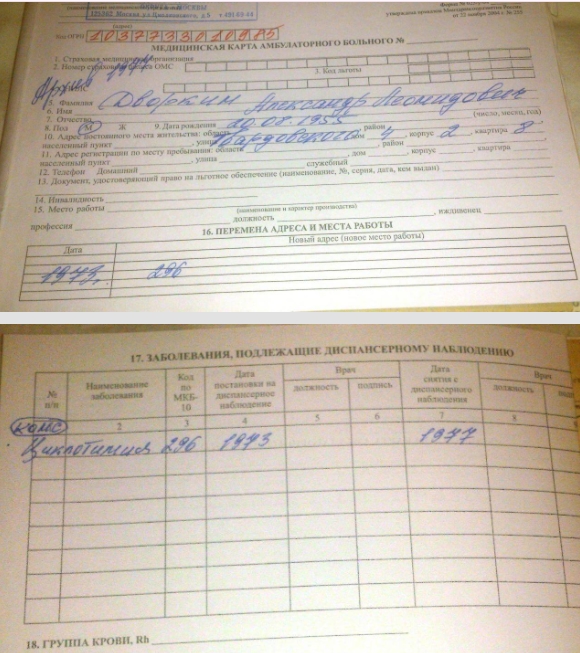 125362 Москва ул Циолковского, д.9 т.491-03-48
утверждена приказом Минздравсоцразвития России
от 22 ноября 2004 г. №
1037733010985
МЕДИЦИНСКАЯ КАРТА АМБУЛАТОРНОГО БОЛЬНОГО №
Архив 1977
1. Страховая медицинская организация
2. Номер страхового полиса ОМС
3. Код льготы
5. Фамилия Дворкин Александр Леонидович
6. Имя
7. Отчество
(число, месяц, год)
8. Пол М Ж 9. Дата рождения 20.08.1955
10. Адрес постоянного места жительства: область район
населенный пункт , улица дом 4 , корпус 2 , квартира 8
11. Адрес регистрации по месту пребывания: область район
населенный пункт , улица дом , корпус , квартира
12. Телефон Домашний служебный
13. Документ, удостоверяющий право на льготное обеспечение (наименование, №, серия, дата, кем выдан)
14. Инвалидность
15. Место работы
(наименование и характер производства)
профессия должность , иждивенец
16. ПЕРЕМЕНА АДРЕСА И МЕСТА РАБОТЫ
Дата Новый адрес (новое место работы)
1973, 296
17. ЗАБОЛЕВАНИЯ, ПОДЛЕЖАЩИЕ ДИСПАНСЕРНОМУ НАБЛЮДЕНИЮ
№ п/п Наименование заболевания Код по МКБ-10 Дата постановки на диспансерное наблюдение Врач Дата снятия с диспансерного наблюдения Врач
должность подпись должность
2 3 4 5 6 7 8
Циклотимия 296 1973 1977
18. ГРУППА КРОВИ, Rh